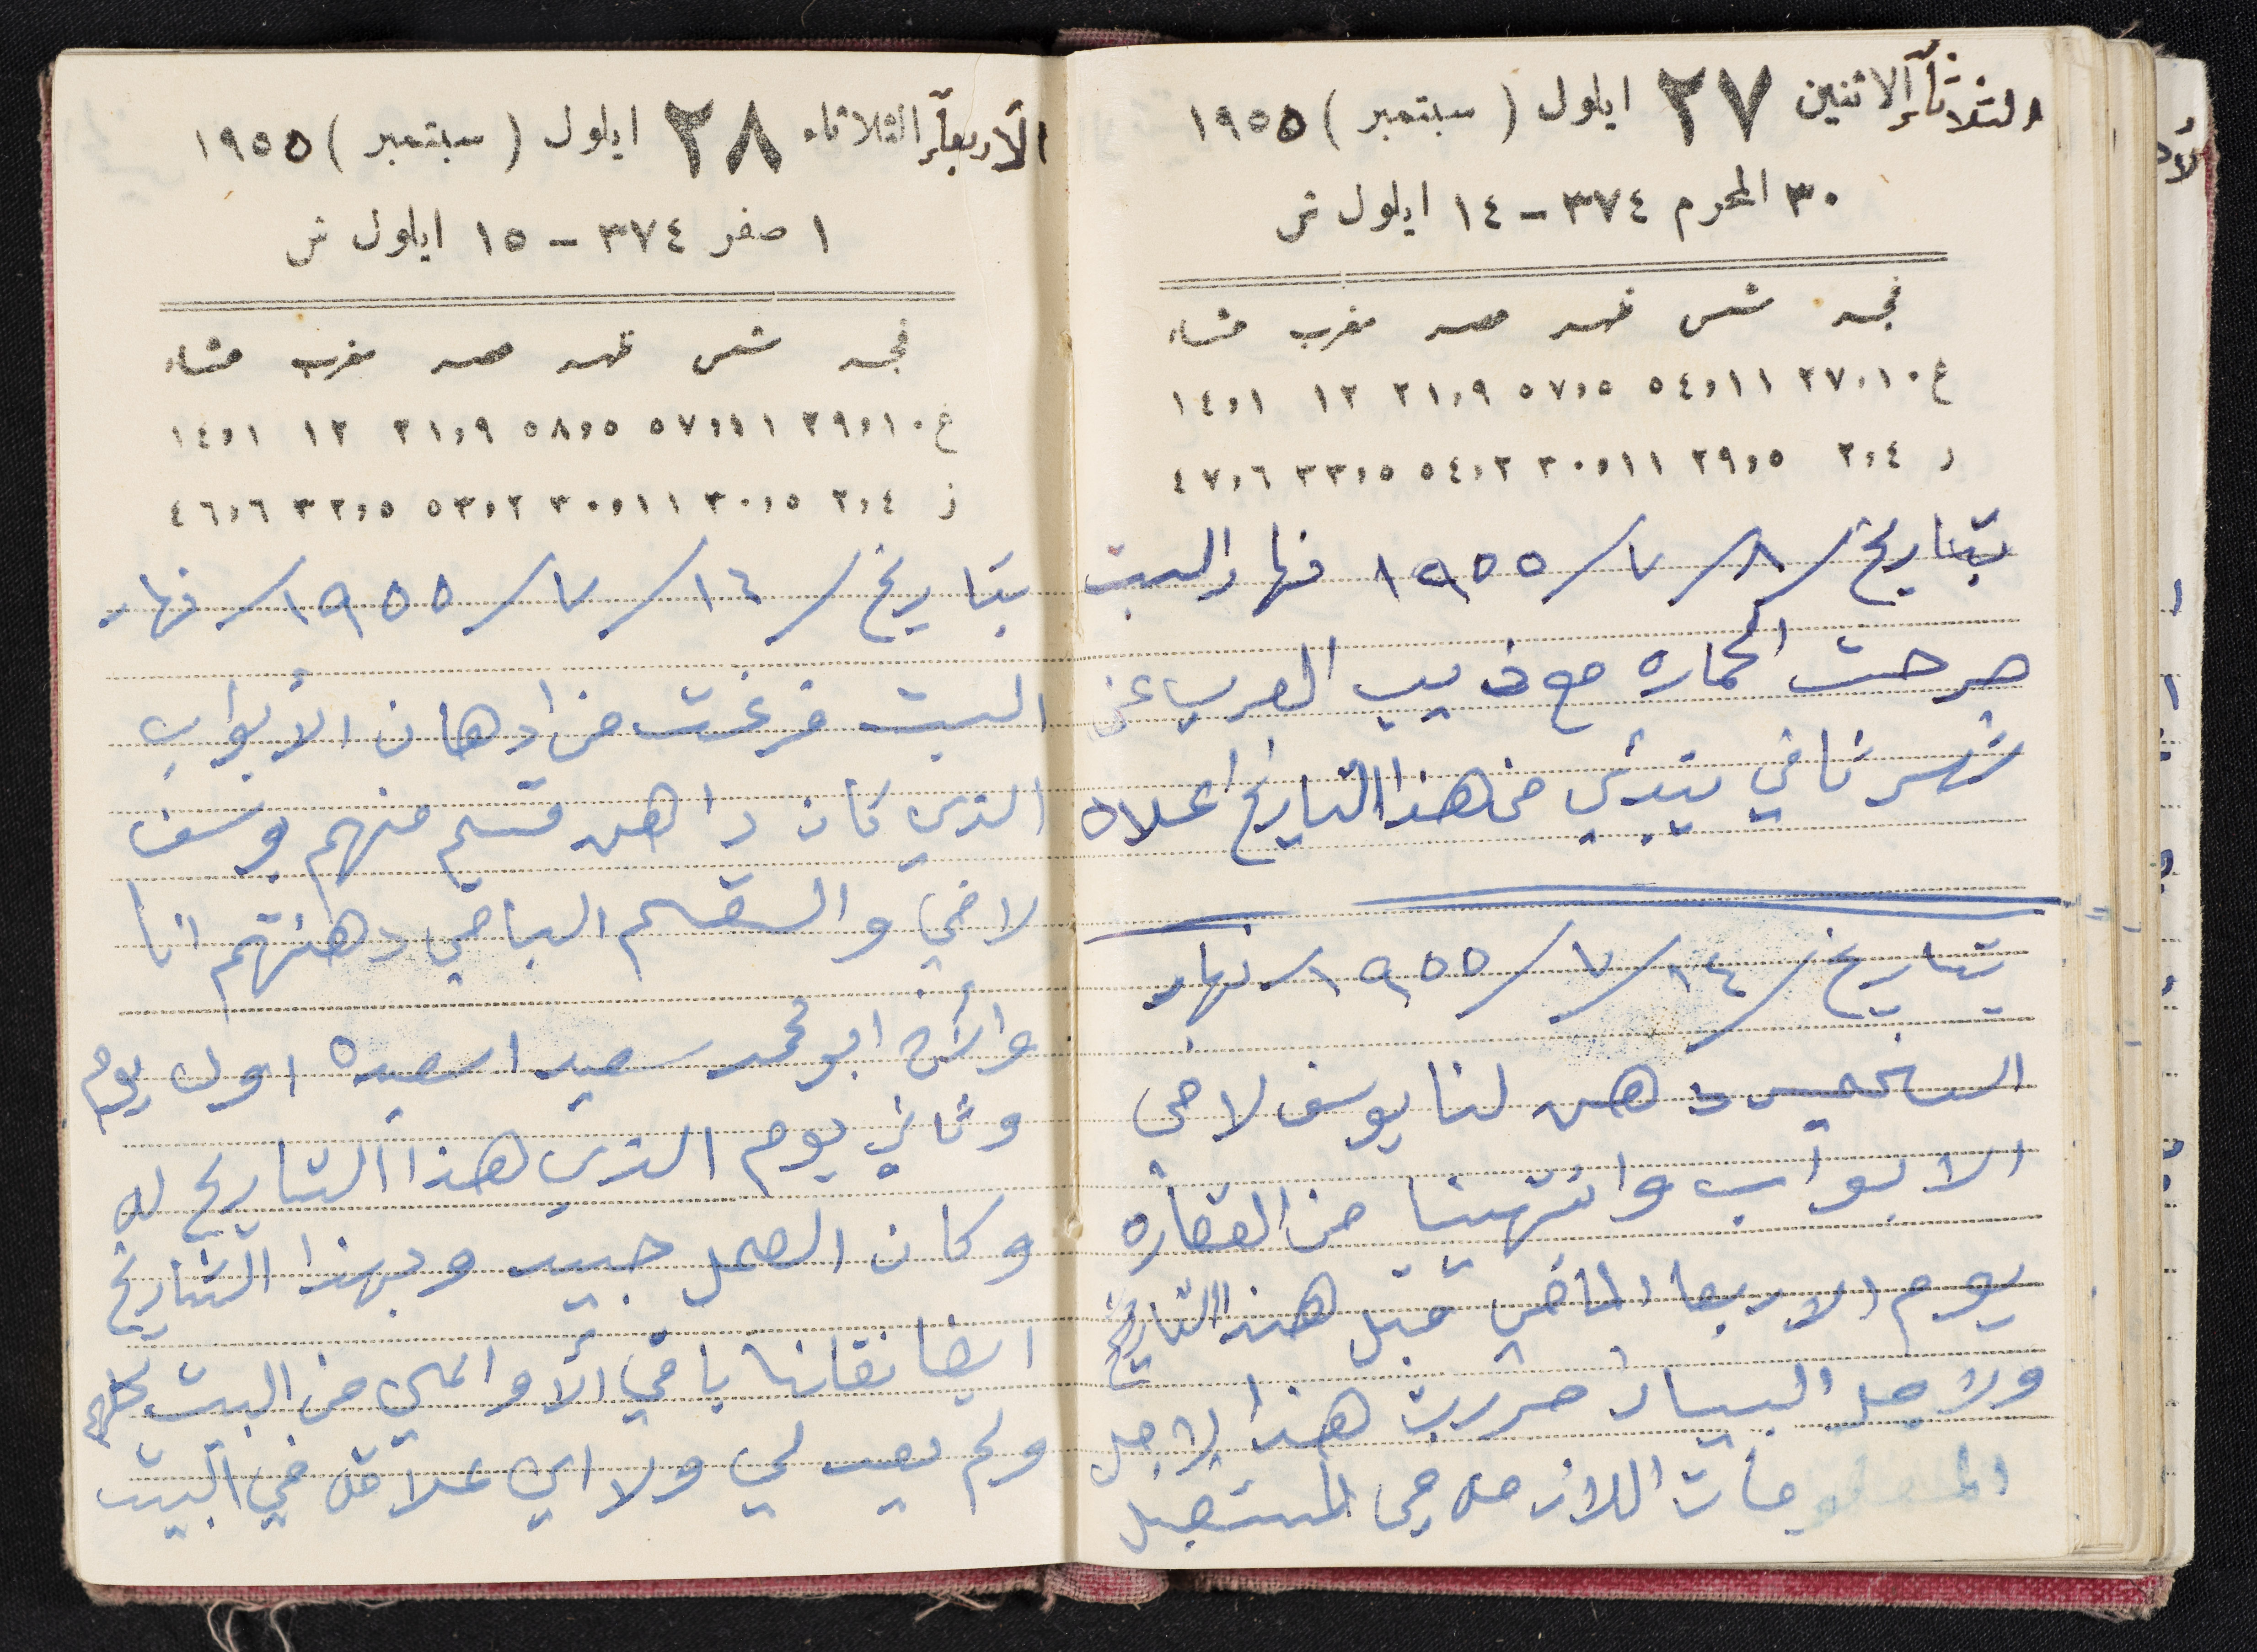 الثلاثاء الاثنين ٢٧ ايلول ( سبتمبر ) ١٩٥٥
٣٠ المحرم ٣٧٤ - ١٤ ايلول ش
فجر شمس ظهر عصر مغرب عشاء
ع ٢٧،١٠ ٥٤،١١ ٥٧،٥ ٢١،٩ ١٢ ١٤،١
ز ٢،٤ ٢٩،٥ ٣٠،١١ ٥٤،٢ ٣٣،٥ ٤٧،٦
بتاريخ /٨ /٧ /١٩٥٥ نهار السبت
سرحت الحماره مع ذيب العرب عن
شهر ثاني يبتدئ من هذا التاريخ اعلاه
بتاريخ /١٤ /٧ /١٩٥٥ نهار
الخميس دهن لنا يوسف لافي
الابواب وانتهينا من القصاره
يوم الاربعا الماضي قبل هذا التاريخ
ولاجل البيان حررت هذا لاجل
المعلومات اللازمه في المستقبل
الأربعاء الثلاثاء ٢٨ ايلول ( سبتمبر ) ١٩٥٥
١ صفر ٣٧٤ - ١٥ ايلول ش
فجر شمس ظهر عصر مغرب عشاء
ع ٢٩،١٠ ٥٧،١١ ٥٨،٥ ٢١،٩ ١٢ ١٤،١
ز ٢،٤ ٣٠،٥ ٣٠،١١ ٥٣،٢ ٣٢،٥ ٤٦،٦
بتاريخ /١٦ /٧ /١٩٥٥ نهار
السبت فرغت من ادهان الأبواب
الذي كان داهن قسم منهم يوسف
لافي والقسم الباقي دهنتهم انا
وابن ابو محمد سعيد اسعيده اول يوم
وثاني يوم الذي هذا التاريخ له
وكان العمل جيد وبهذا التاريخ
ايضا نقلنا باقي الأواعي من البيت كله
ولم يعد لي ولا اي علاقه في البيت